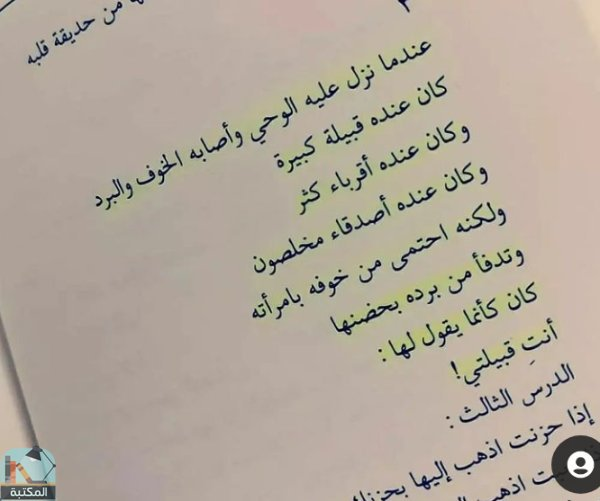 ٣
من حديقة قلبه
عندما نزل عليه الوحي وأصابه الخوف والبرد
كان عنده قبيلة كبيرة
وكان عنده أقرباء كثر
وكان عنده أصدقاء مخلصون
ولكنه احتمى من خوفه بامرأته
وتدفأ من برده بحضنها
كان كأنما يقول لها :
أنتِ قبيلتي!
الدرس الثالث :
إذا حزنت اذهب إليها بحزنك
اذهب
المكتبة